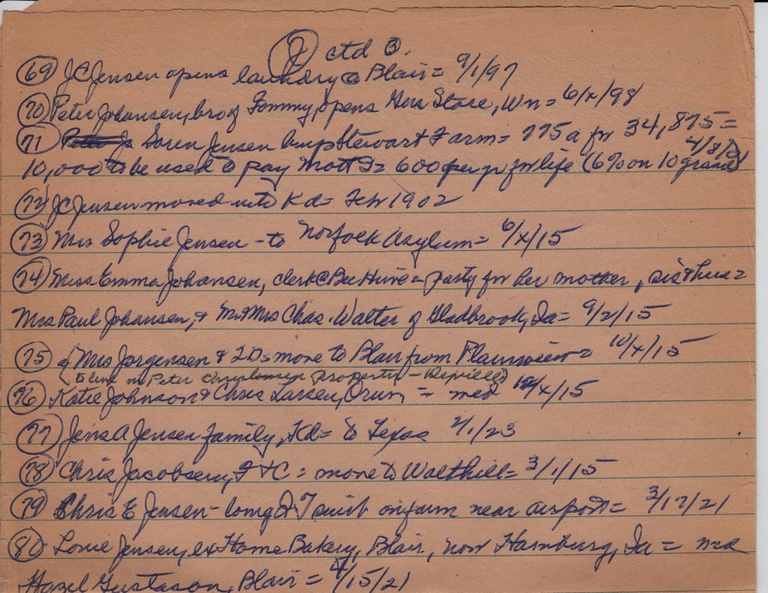 (7) ctd 3.
(69) JC Jensen opens laundry @ Blair = 9/1/97
(70) Peter Johansen, bro of Tommy, opens Gen Store, Wn = 6/x/98
(71) Soren Jensen Stewart Farm = 775a for 34,875 =
4/8/
10,000 to be used to pay = 600 per yr for life (6% on 10 grand)
(72) JC Jensen moved into Kd = Feb 1902
(73) Mrs Sophie Jensen - to Norfolk Asylum = 6/x/15
(74) Miss Emma Johansen, clerk @ Bee Hive = party for her mother, sis & hus =
Mrs Paul Johansen, & Mr & Mrs Chas. Walter of Gladbrook, Ia = 9/2/15
(75) Mrs Jorgensen & 2 Ds = move to Blair from Plainview = 10/x/15
(to live in Peter property - )
(76) Katie Johnson & Chris Larsen, Orum = med 10/x/15
(77) Jens A Jensen family, Kd = to Texas 2/1/23
(78) Chris Jacobsen, F & C = move to Walthill = 3/1/15
(79) Chris E Jensen - on farm near airport = 3/17/21
(80) Louie Jensen, ex Home Bakery, Blair, now Hamburg, Ia = med
Hazel Gustason, Blair = 4/15/21